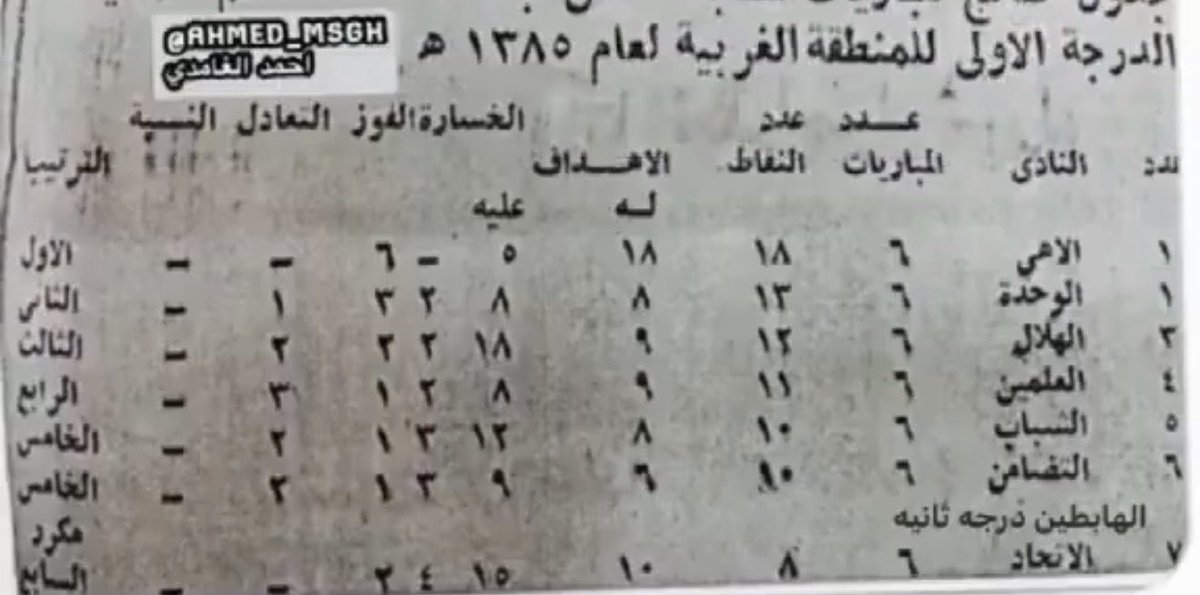 @AHMED_MSGH
احمد الغامدي
الدرجة الاولى للمنطقة الغربية لعام ١٣٨٥ هـ
عدد النادى عدد المباريات عدد النقاط الاهداف الخسارة الفوز التعادل النسبة الترتيب
له عليه
١ الاهى ٦ ١٨ ١٨ ٥ – ٦ – – الاول
١ الوحدة ٦ ١٣ ٨ ٨ ٢ ٣ ١ – الثانى
٣ الهلال ٦ ١٢ ٩ ١٨ ٢ ٢ ٢ – الثالث
٤ العلمين ٦ ١١ ٩ ٨ ٢ ١ ٣ – الرابع
٥ الشباب ٦ ١٠ ٨ ١٢ ٣ ١ ٢ – الخامس
٦ التضامن ٦ ١٠ ٦ ٩ ٣ ١ ٢ – الخامس
الهابطين درجه ثانيه
مكرد
٧ الاتحاد ٦ ٨ ١٠ ١٥ ٤ ٢ – – السابع